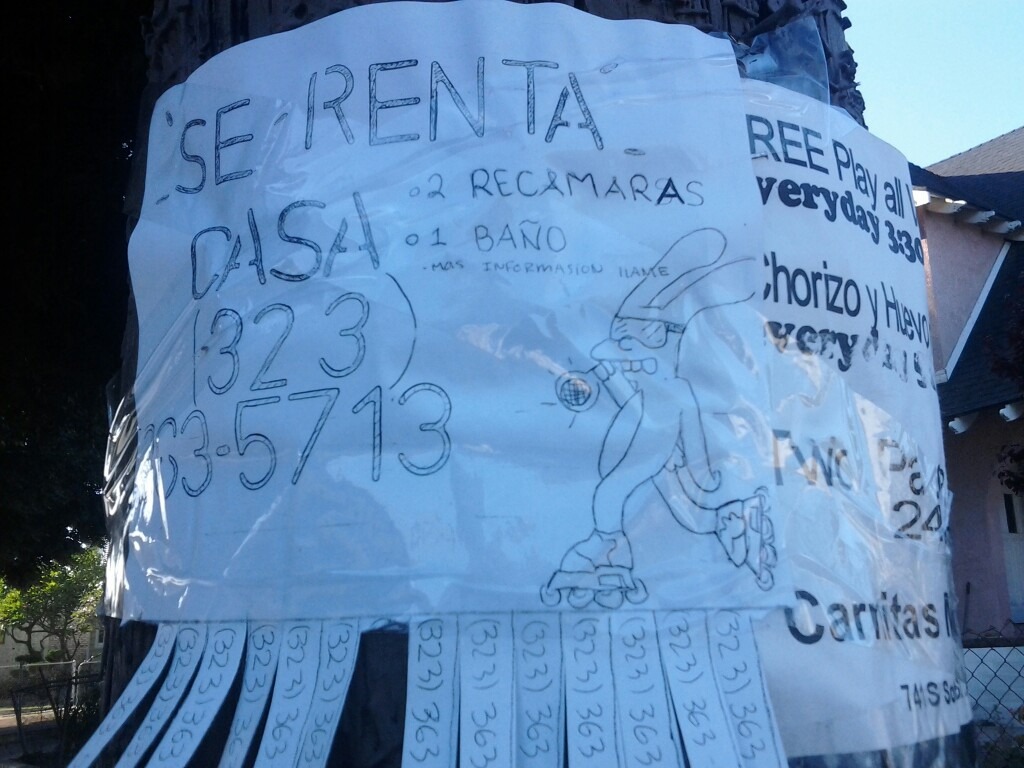 SE RENTA
CASA
o 2 RECAMARAS
o 1 BAÑO
· MAS INFORMASION llAME
(323)
363-5713
(323) 363
(323) 363
(323) 363
(323) 363
(323) 363
(323) 363
(323) 363
(323) 363
(323) 363
(323) 363
(323) 363
(323) 363
(323) 363
REE Play all
veryday 3:30
Chorizo y Huevo
Carnitas
741 S